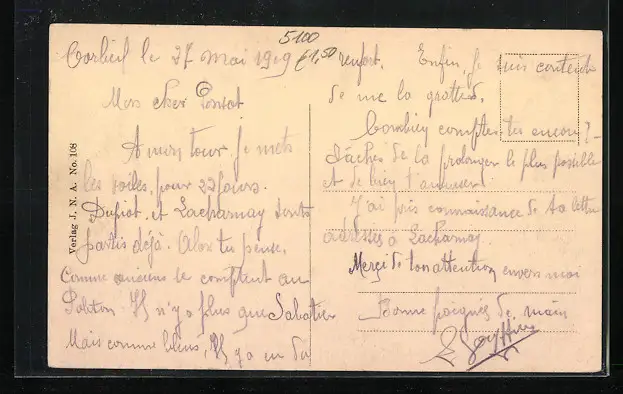 5100
€1,50
Corbeil le 27 mai 1919
Mon cher
A mon tour je mets
les voiles, pour 22 jours.
Dupiot et Lacharnay sont
partis déjà. Alors tu penses,
Comme anciens ils comptent au
Il n'y a plus que Sabatier
Mais comme bleus, Il y a eu du
renfort. Enfin, je suis content
de me la
Combien comptes tu encore? -
Tâches de la prolonger le plus possible
et de bien t'amuser.
J'ai pris connaissance de ta lettre
adressée à Lacharnay.
Merci de ton attention envers moi
Bonne poignée de main
Verlag J. N. A. No. 108